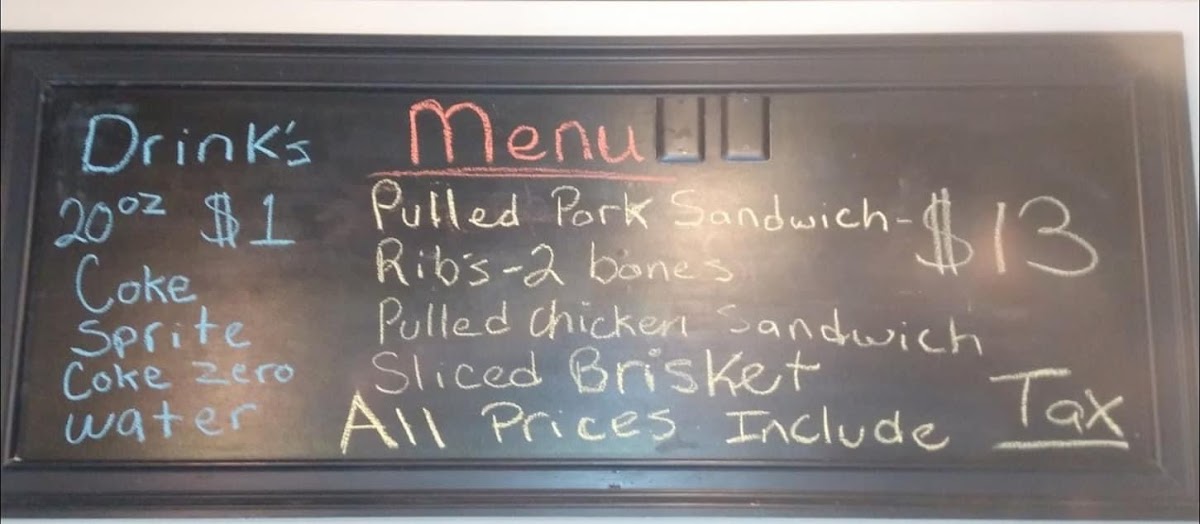 Drink's
20oz $1
Coke
Sprite
Coke zero
water
Menu
Pulled Pork Sandwich - $13
Rib's - 2 bones
Pulled chicken Sandwich
Sliced Brisket
All Prices Include Tax